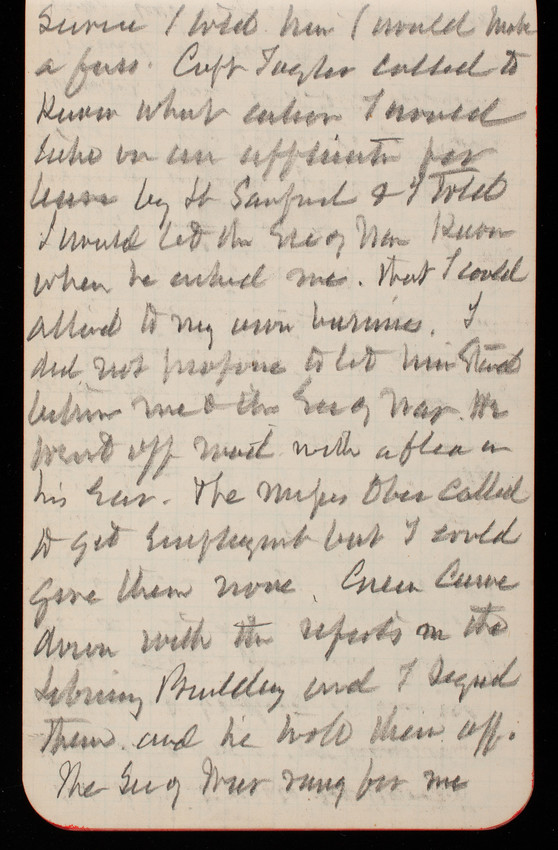 Service I told him I would make
a fuss. Capt Taylor called to
Know what action I would
take on an application for
leave by Lt Sanford & I told
I would let the Sec of War Know
when he asked me. that I could
attend to my own business. I
did not propose to let him Stand
between me & the Sec of War. He
went off with a flea in
his Ear. The misses called
to get Employment but I could
give them none. Green Came
down with the reports on the
Library Building and I signed
them and he took them off.
The Sec of War rang for me